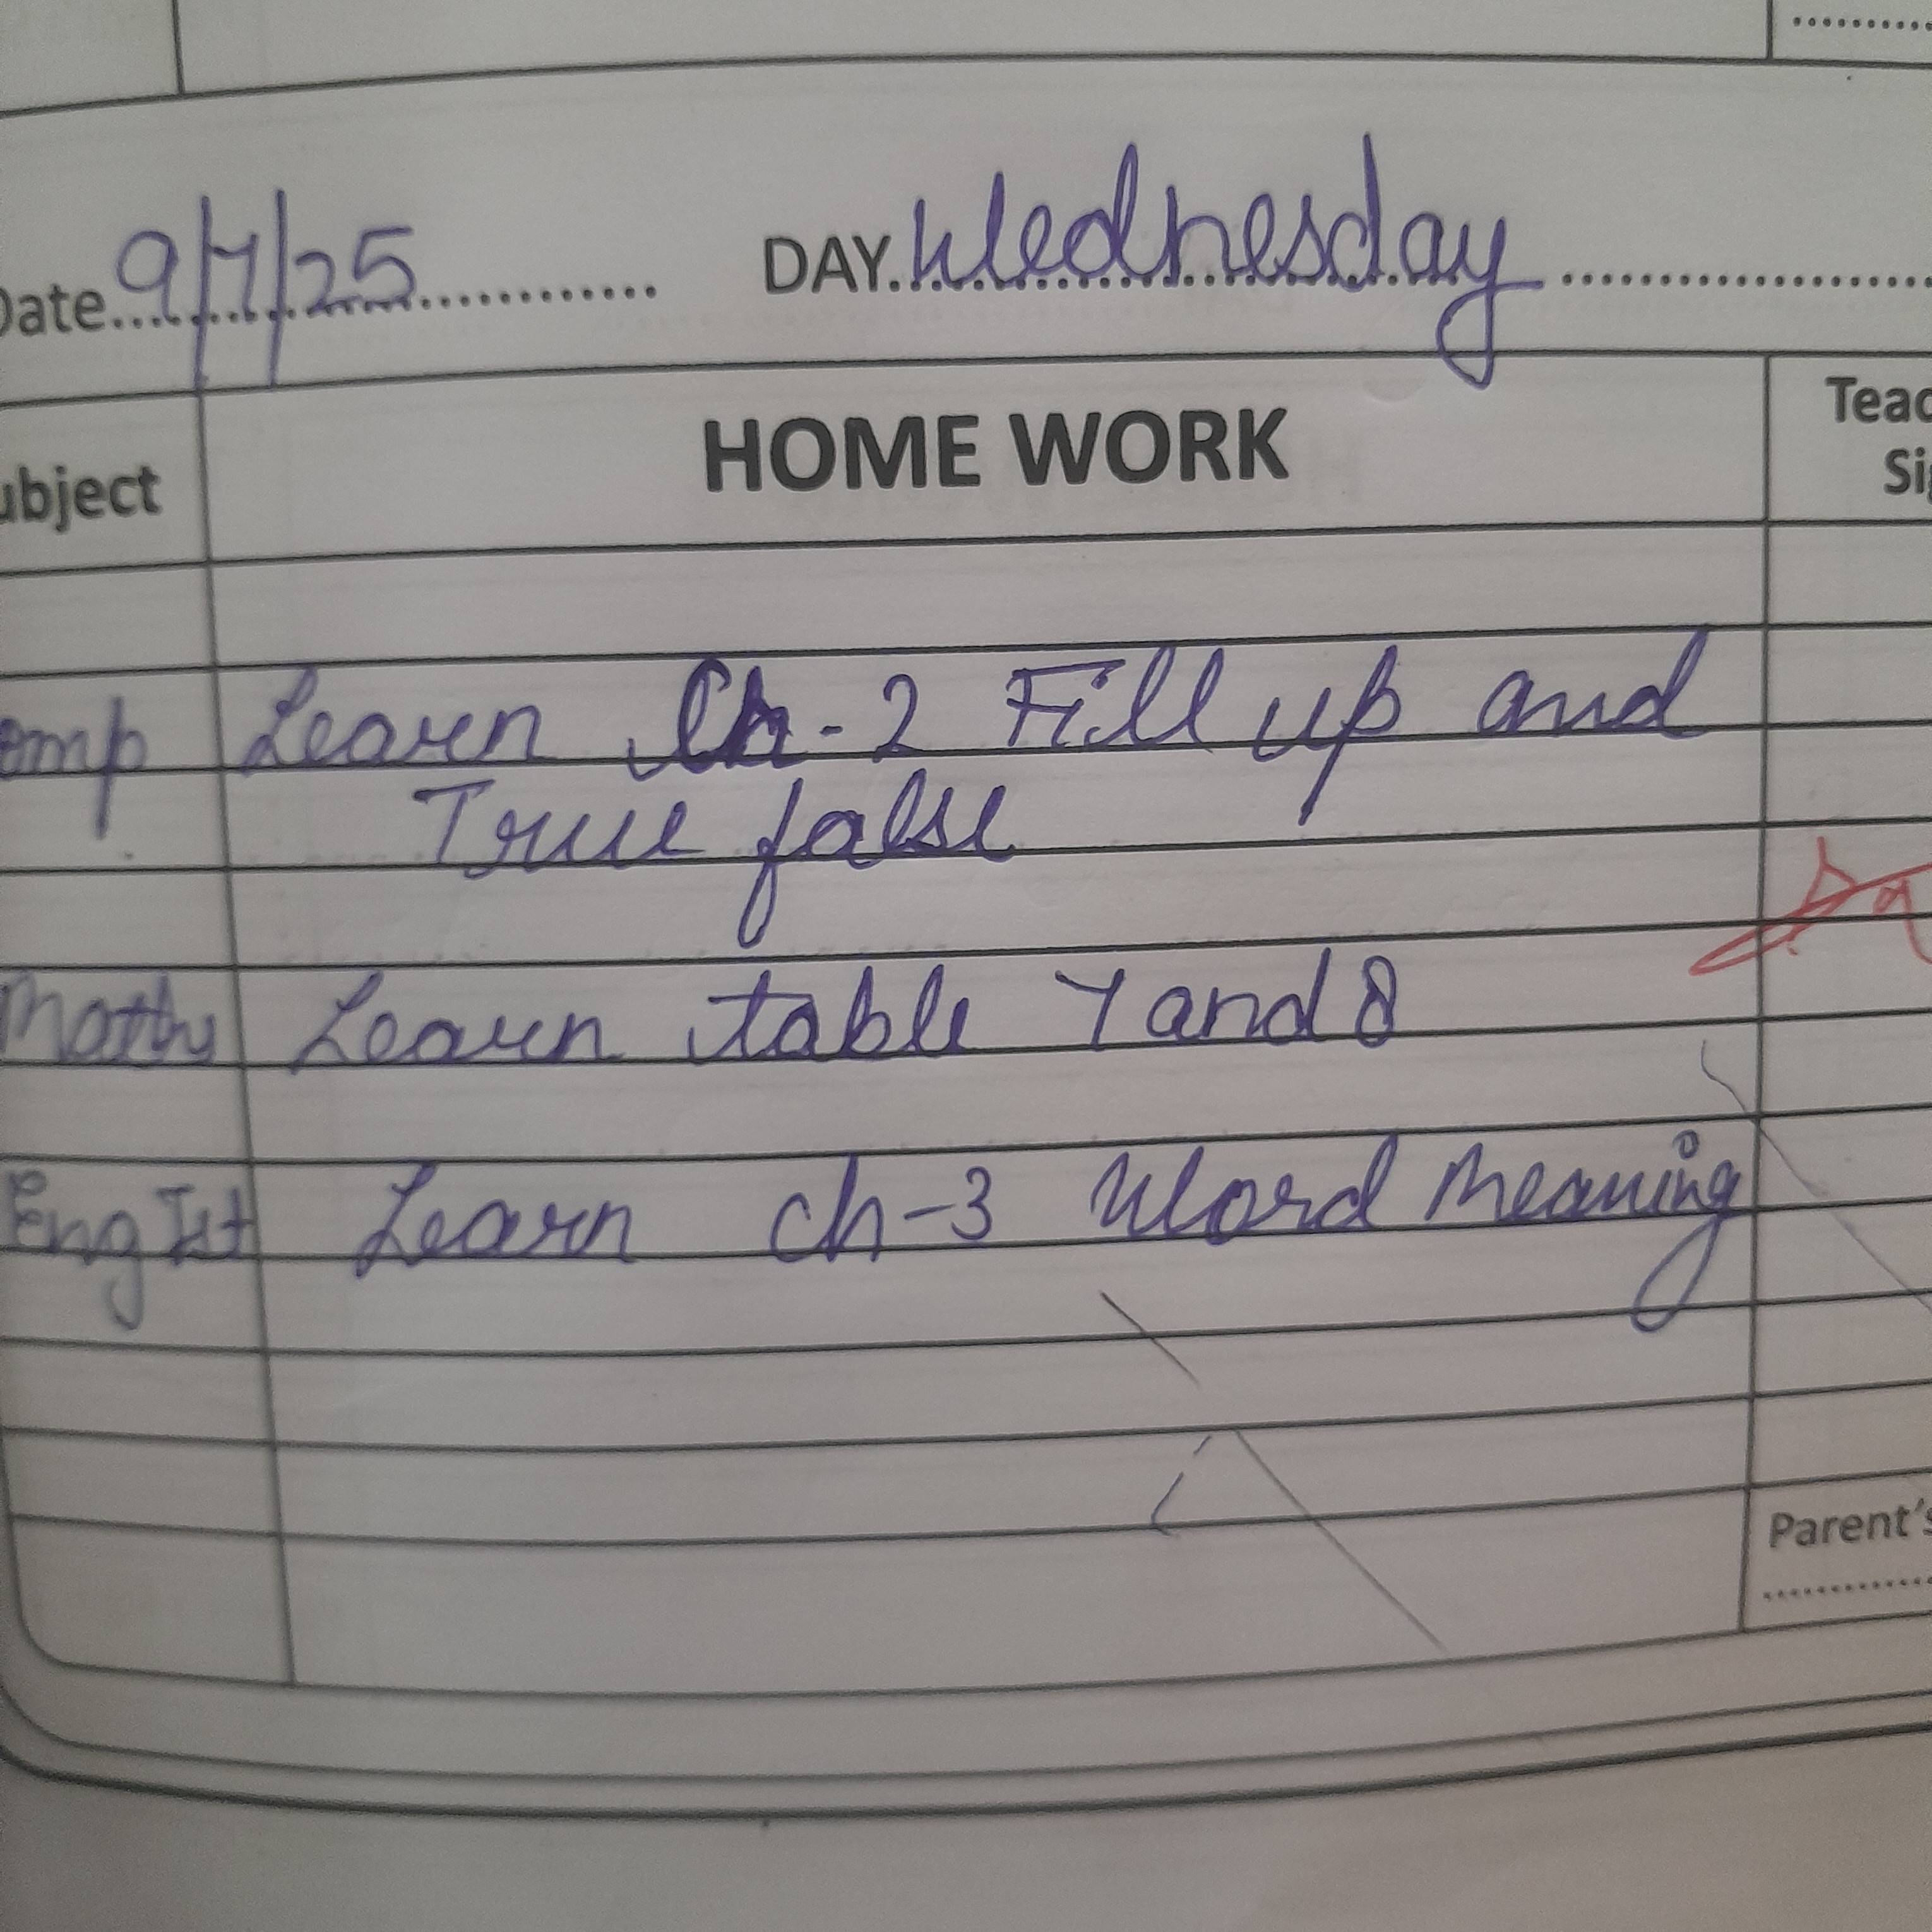 Date 9/7/25 DAY Wednesday
ubject HOME WORK Teac
Si
omp Learn Ch-2 Fill up and
True false
Maths Learn table 7 and 8
Eng Ist Learn ch-3 Word Meaning
Parent's